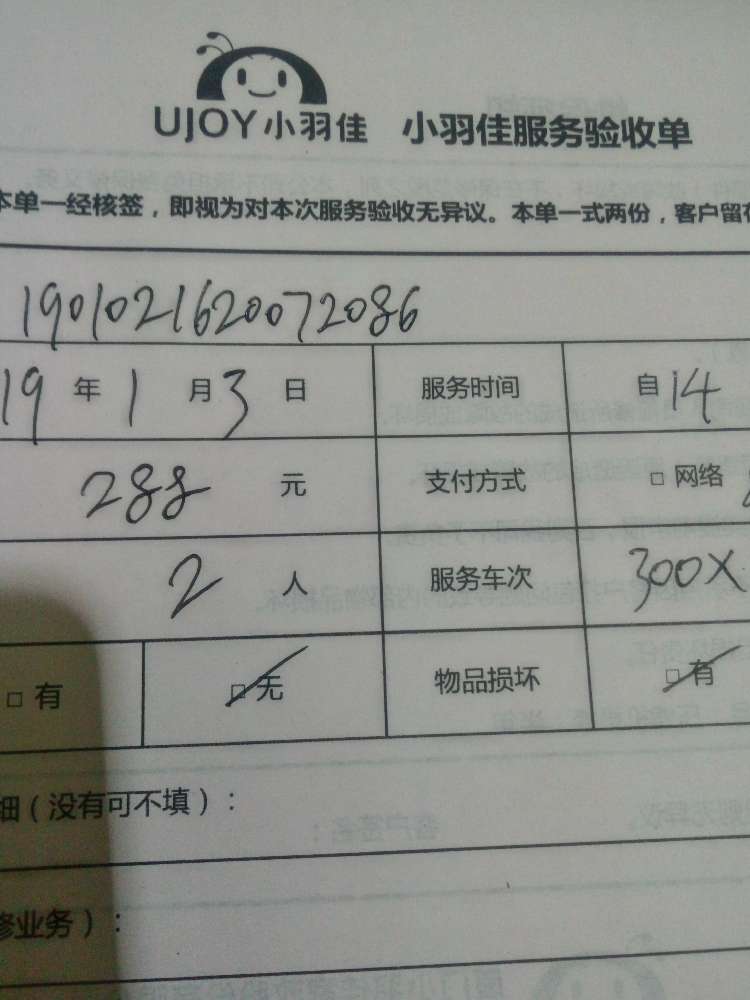 UJOY小羽佳 小羽佳服务验收单
本单一经核签，即视为对本次服务验收无异议。本单一式两份，客户留存
1901021620072086
19 年 1 月 3 日 服务时间 自 14
288 元 支付方式 □ 网络
2 人 服务车次 300X
□ 有 □ 无 物品损坏 □ 有
细（没有可不填）：
修业务）：